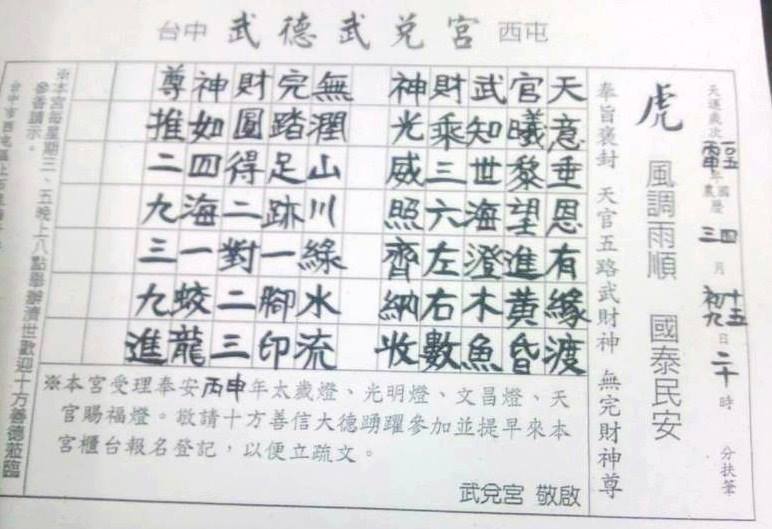 台中 武德武兌宮 西屯
天運歲次一〇五丙申年國農曆四三月十五初九日二十時 分扶筆
虎 風調雨順 國泰民安
奉旨褒封 天官五路武財神 無完財神尊
天意垂恩有緣渡
官曦黎望進黃昏
武知世海澄木魚
財乘三六左右數
神光威照齊納收
無潤山川綠水流
完踏足跡一腳印
財圓得二對二三
神如四海一蛟龍
尊推二九三九進
※本宮受理奉安丙申年太歲燈、光明燈、文昌燈、天
官賜福燈。敬請十方善信大德踴躍參加並提早來本
宮櫃台報名登記，以便立疏文。
武兌宮 敬啟
※本宮每星期三、五晚上八點舉辦濟世歡迎十方善德蒞臨
參香請示。
台中市西屯區上石